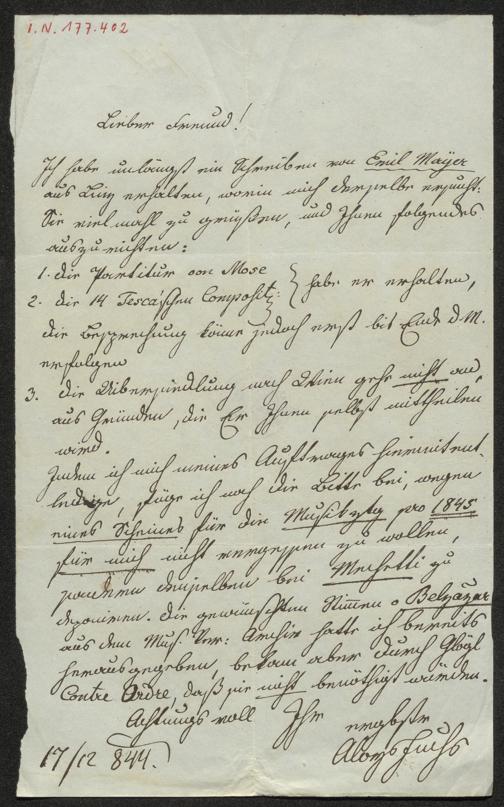 I.N. 177.402
Lieber Freund!
Ich habe unlängst ein Schreiben von Emil Mayer
aus Linz erhalten, worin mich derselbe ersucht:
Sie vielmahl zu grüßen, und Ihnen folgendes
auszurichten:
1. die Partitur von Mose
2. die 14 Tesca'schen Composit: } habe er erhalten,
die Besprechung könne jedoch erst bis Ende d. M.
erfolgen
3. die Übersiedlung nach Wien gehe nicht an,
aus Gründen, die Er Ihnen selbst mittheilen
wird.
Indem ich mich meines Auftrages hiermit ent-
ledige, füge ich noch die Bitte bei, wegen
eines Scheines für die Musikztg pro 1845
für mich nicht vergessen zu wollen,
sondern denselben bei Mechetti zu
deponiren. Die gewünschten Stimmen v Belzazar
aus dem Musi. Ver: Archiv hatte ich bereits
herausgegeben, bekam aber durch Glögl
Contre Ordre, daß sie nicht benöthigt würden.
Achtungsvoll Ihr ergbste
17/12 844. Aloys Fuchs